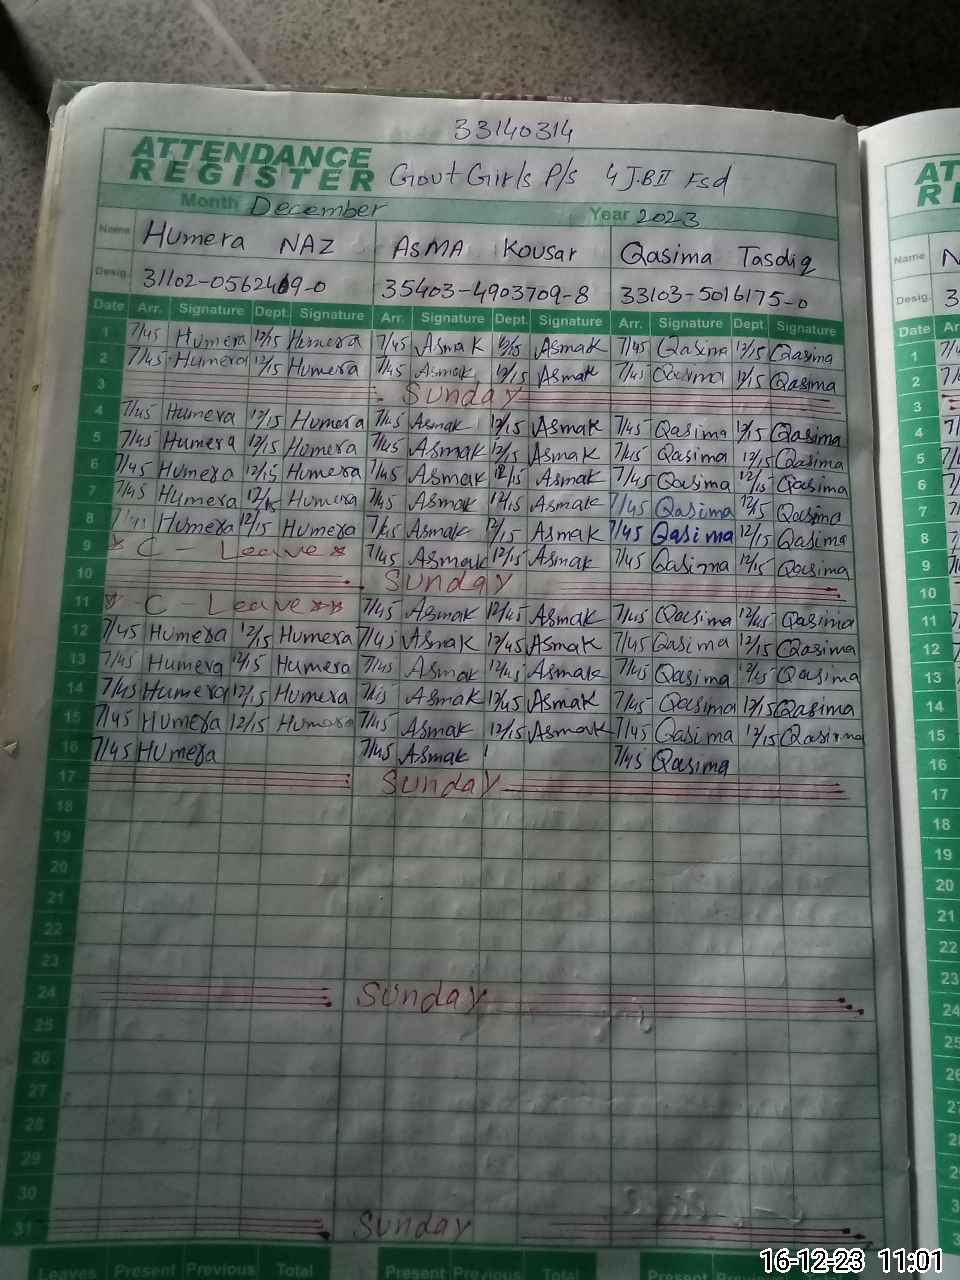 33140314
ATTENDANCE
REGISTER Govt Girls P/s 4 J.B II Fsd
Month December Year 2023
Name Humera NAZ ASMA Kousar Qasima Tasdiq
Desig. 35403-4903709-8 33103-5016175-0
Date Arr. Signature Dept. Signature Arr. Signature Dept. Signature Arr. Signature Dept. Signature
1 7/45 Humera 12/15 Humera 7/45 Asma K 12/15 Asmak 7/45 Qasima 12/15 Qasima
2 7/45 Humera 12/15 Humera 7/45 Asmak 12/15 Asmak 7/45 Qasima 12/15 Qasima
3 Sunday
4 7/45 Humera 12/15 Humera 7/45 Asmak 12/15 Asmak 7/45 Qasima 12/15 Qasima
5 7/45 Humera 12/15 Humera 7/45 Asmak 12/15 Asmak 7/45 Qasima 12/15 Qasima
6 7/45 Humera 12/15 Humera 7/45 Asmak 12/15 Asmak 7/45 Qasima 12/15 Qasima
7 7/45 Humera 12/15 Humera 7/45 Asmak 12/15 Asmak 7/45 Qasima 12/15 Qasima
8 Humera 12/15 Humera 7/45 Asmak 12/15 Asmak 7/45 Qasima 12/15 Qasima
9 C - Leave 7/45 Asmak 12/15 Asmak 7/45 Qasima 12/15 Qasima
10 Sunday
11 C - Leave 7/45 Asmak 12/45 Asmak 7/45 Qasima 12/45 Qasima
12 7/45 Humera 12/15 Humera 7/45 Asmak 12/45 Asmak 7/45 Qasima 12/15 Qasima
13 7/45 Humera 12/15 Humera 7/45 Asmak 12/45 Asmak 7/45 Qasima 12/45 Qasima
14 7/45 Humera 12/15 Humera 7/45 Asmak 12/45 Asmak 7/45 Qasima 12/15 Qasima
15 7/45 Humera 12/15 Humera 7/45 Asmak 12/15 Asmak 7/45 Qasima 12/15 Qasima
16 7/45 Humera 7/45 Asmak 7/45 Qasima
17 Sunday
18
19
20
21
22
23
24 Sunday
25
26
27
28
29
30
31 Sunday
Leaves Present Previous Total Present Previous Total Present
16-12-23 11:01